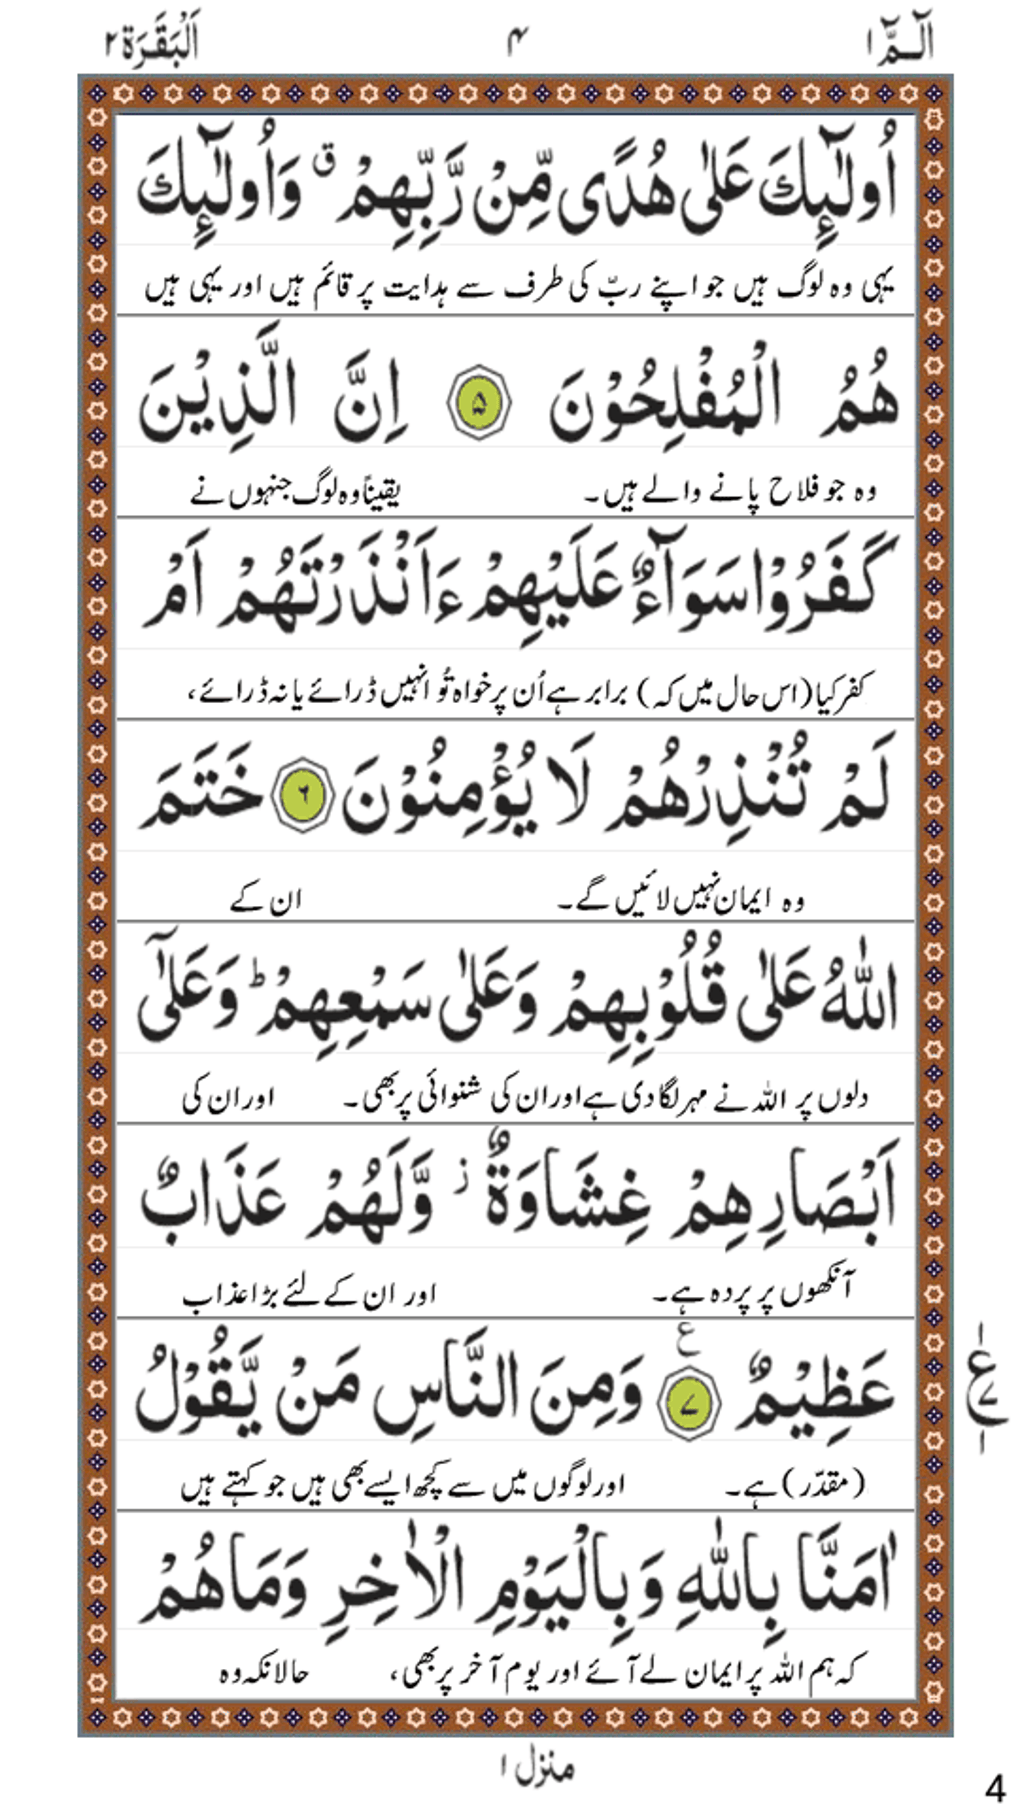 الٓـمّٓ ۱ ۴ اَلْبَقَرَة ۲
اُولٰٓئِكَ عَلٰى هُدًى مِّنْ رَّبِّهِمْ ۗ وَاُولٰٓئِكَ
یہی وہ لوگ ہیں جو اپنے ربّ کی طرف سے ہدایت پر قائم ہیں اور یہی ہیں
هُمُ الْمُفْلِحُوْنَ ۵ اِنَّ الَّذِيْنَ
وہ جو فلاح پانے والے ہیں۔ یقیناً وہ لوگ جنہوں نے
كَفَرُوْا سَوَآءٌ عَلَيْهِمْ ءَاَنْذَرْتَهُمْ اَمْ
کفر کیا (اس حال میں کہ) برابر ہے اُن پر خواہ تُو انہیں ڈرائے یا نہ ڈرائے،
لَمْ تُنْذِرْهُمْ لَا يُؤْمِنُوْنَ ۶ خَتَمَ
وہ ایمان نہیں لائیں گے۔ ان کے
اللّٰهُ عَلٰى قُلُوْبِهِمْ وَعَلٰى سَمْعِهِمْ ؕ وَعَلٰٓى
دلوں پر اللہ نے مہر لگا دی ہے اور ان کی شنوائی پر بھی۔ اور ان کی
اَبْصَارِهِمْ غِشَاوَةٌ ز وَّلَهُمْ عَذَابٌ
آنکھوں پر پردہ ہے۔ اور ان کے لئے بڑا عذاب
عَظِيْمٌ ۷ ع وَمِنَ النَّاسِ مَنْ يَّقُوْلُ
۱ ع ۷ ۱
(مقدّر) ہے۔ اور لوگوں میں سے کچھ ایسے بھی ہیں جو کہتے ہیں
اٰمَنَّا بِاللّٰهِ وَبِالْيَوْمِ الْاٰخِرِ وَمَا هُمْ
کہ ہم اللہ پر ایمان لے آئے اور یوم آخر پر بھی، حالانکہ وہ
منزل ۱
4